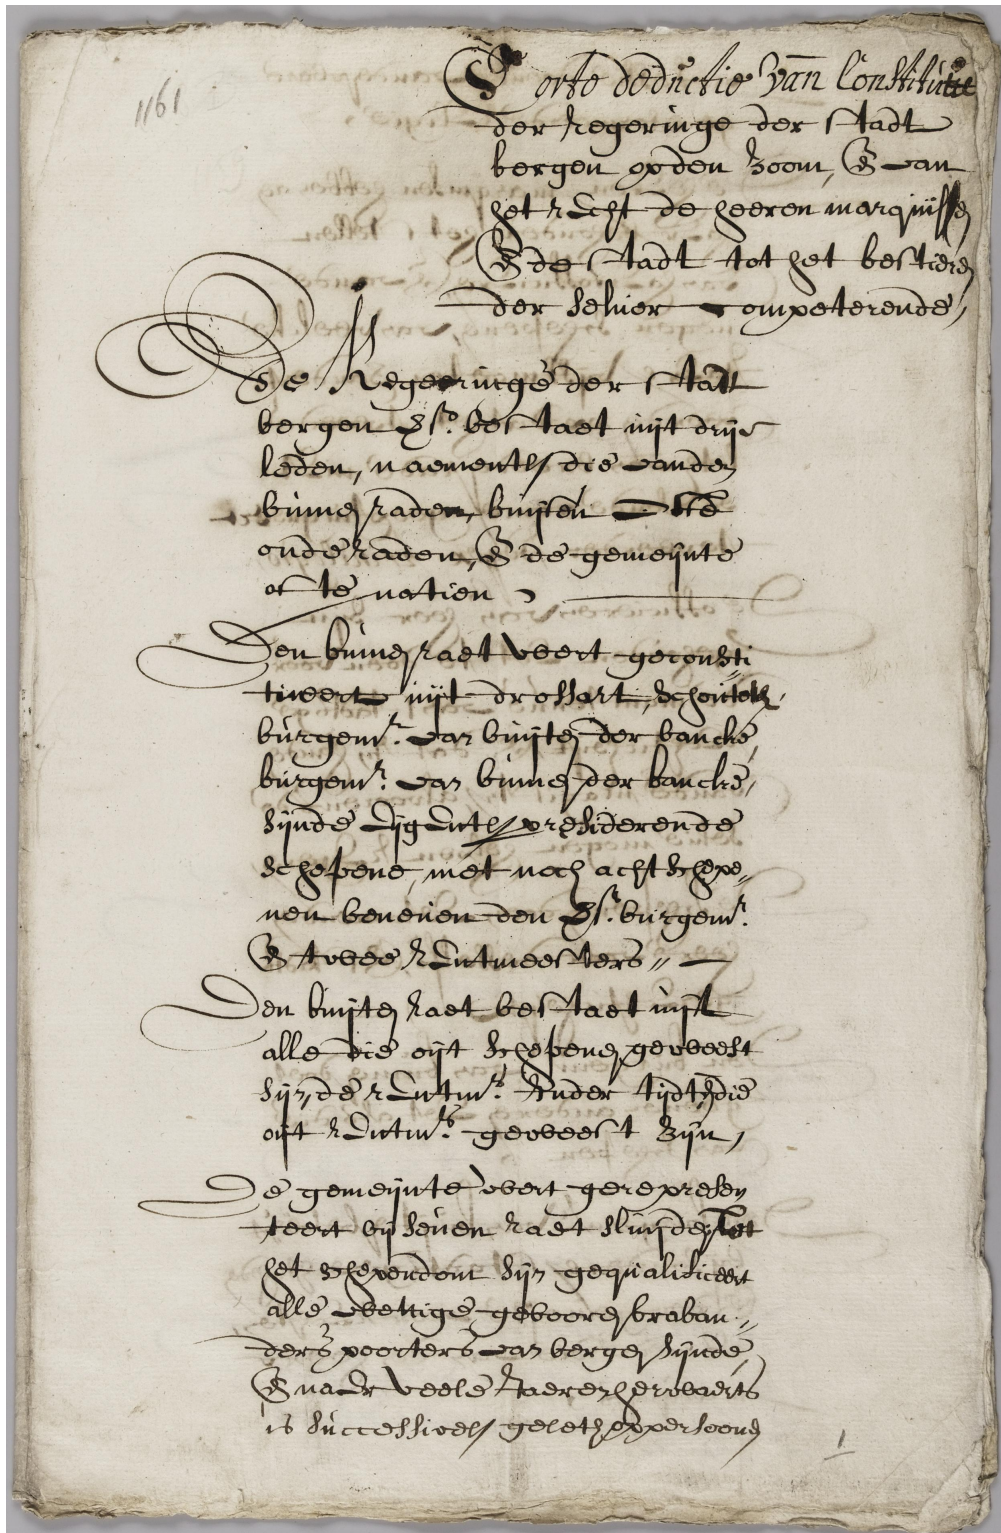 1161
Corte deductie van Constitutie
der regeringe der stadt
bergen opden Zoom, En van
het recht de heeren marquijsen
En de stadt tot het bestieren
der selver competerende,
De Regeeringe der stadt
bergen vs. bestaet uijt drije
leden, naementl die vanden
binnen raden, buijten ofte
oude raden, En de gemeijnte
ofte natien
Den binnen raet wert geconsti
tueert uijt drossart, schouteth,
burgemr. van buijten der bancke,
burgemr. van binnen der bancke,
sijnde eijgentl presiderende
schepene, met noch acht schepe„
nen beneven den vs. burgemr.
En twee Rentmeesters„
Den buijten raet bestaet uijt
alle die oijt schepenen geweest
sijn, de rentmr. inder tijdt, die
oijt rentmrs. geweest zijn,
De gemeijnte wert gerepresen
teert bij seven raet sluijden, tot
het schependom sijn gequalificeert
alle wettige geboren braban„
ders poorters van bergen sijnde,
En naer veele Jaeren herwaerts
is successivel gelet op persoonen
1